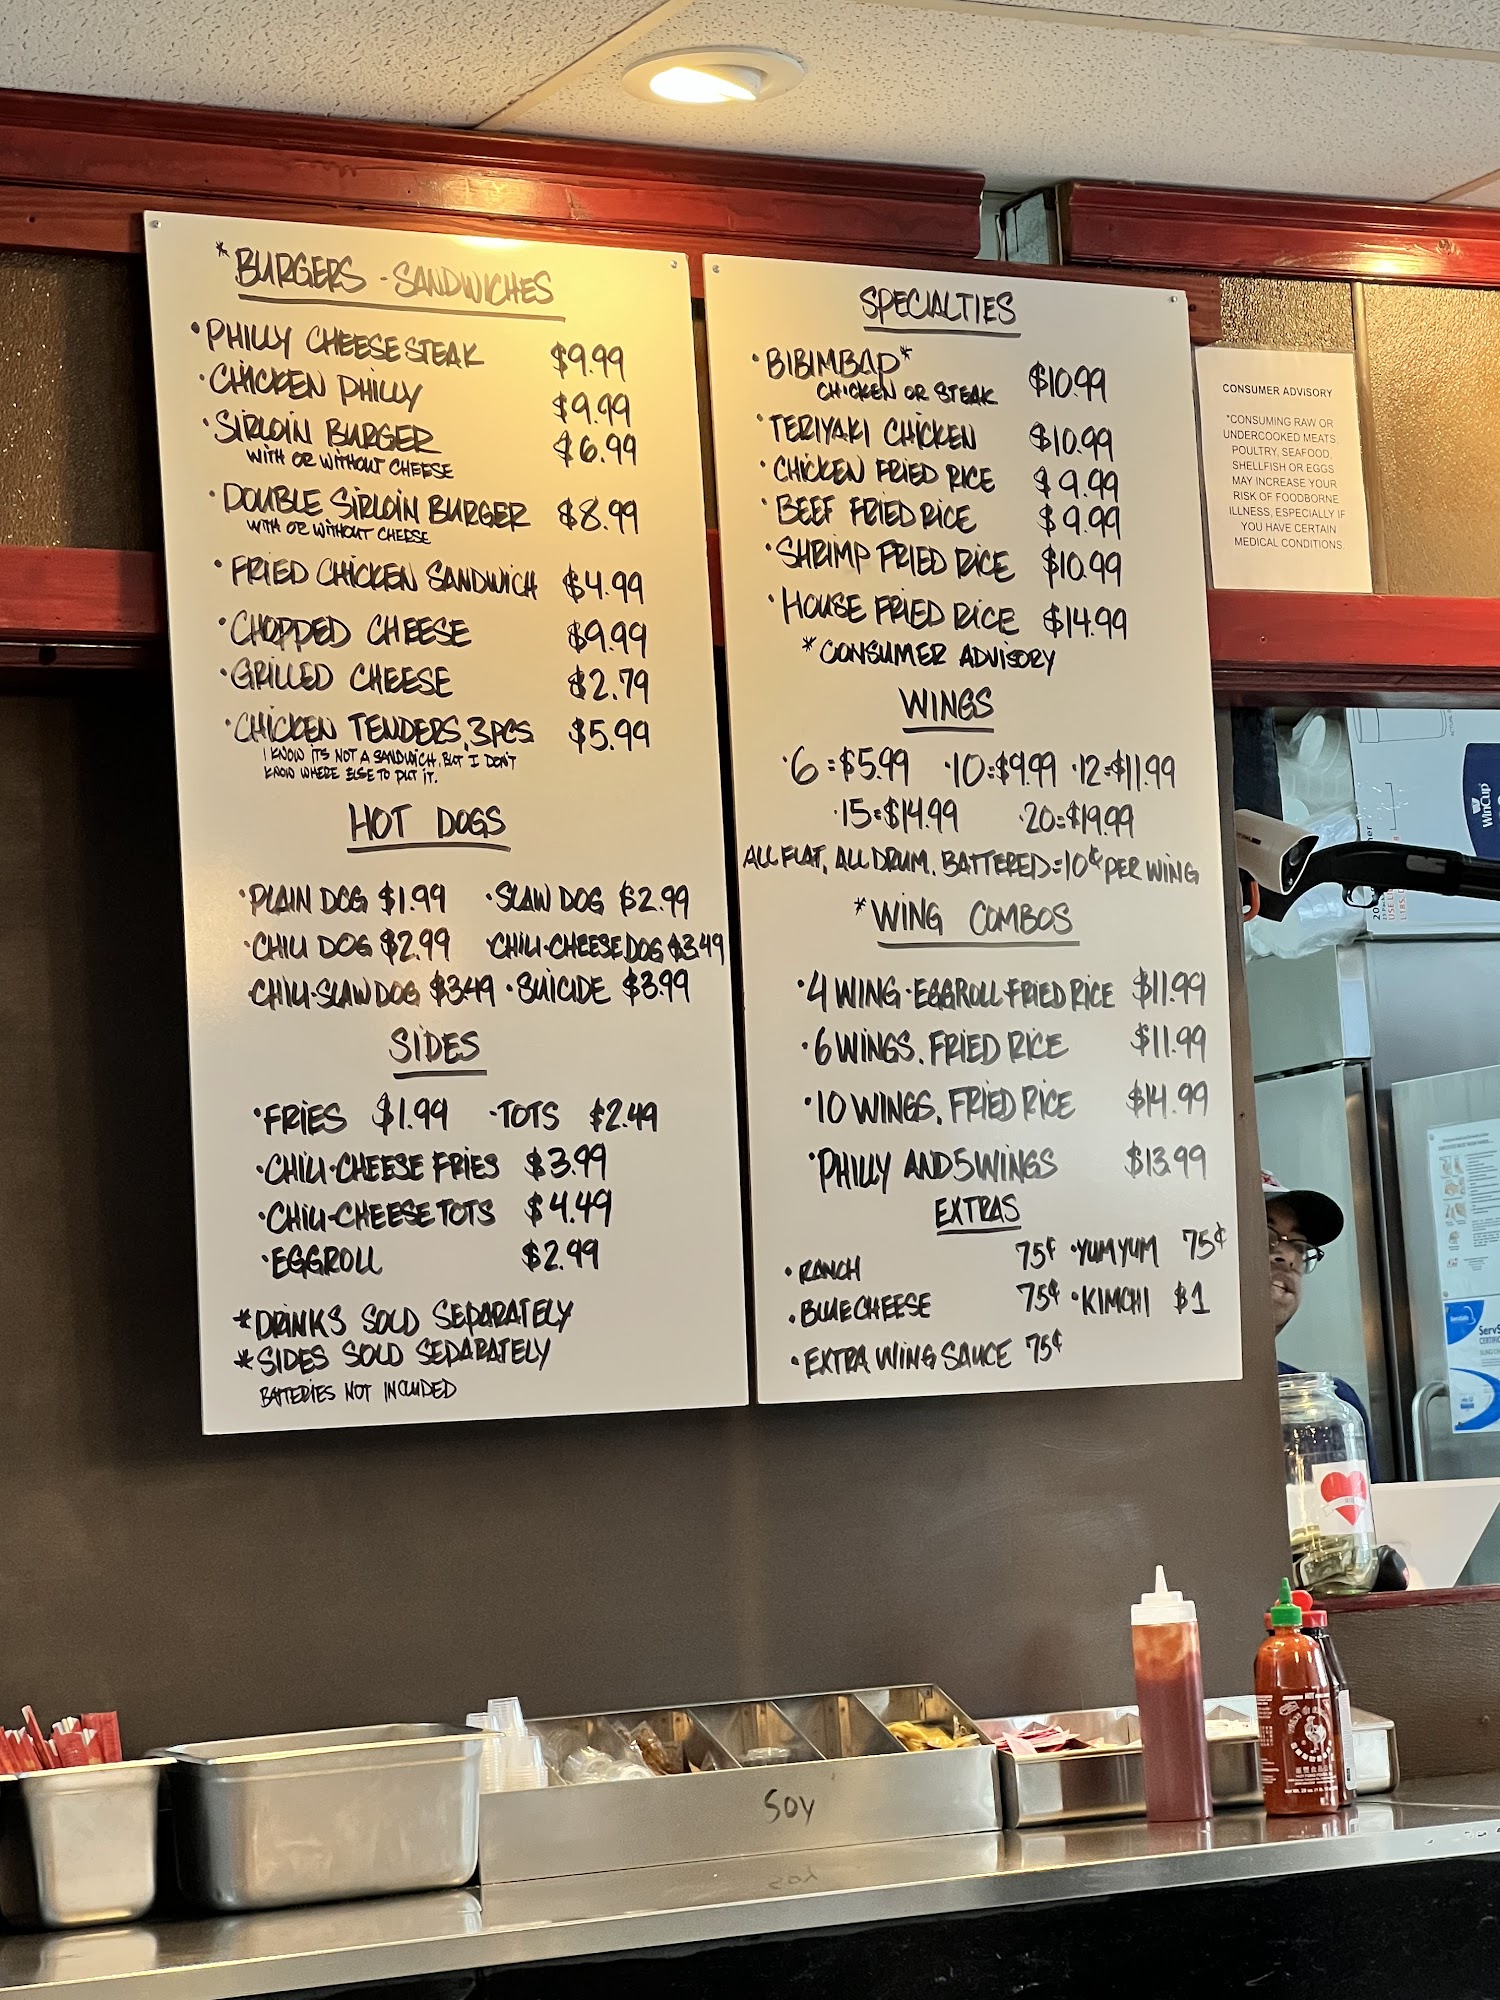 *BURGERS - SANDWICHES
·PHILLY CHEESESTEAK $9.99
·CHICKEN PHILLY $9.99
·SIRLOIN BURGER $6.99
WITH OR WITHOUT CHEESE
·DOUBLE SIRLOIN BURGER $8.99
WITH OR WITHOUT CHEESE
·FRIED CHICKEN SANDWICH $4.99
·CHOPPED CHEESE $9.99
·GRILLED CHEESE $2.79
·CHICKEN TENDERS, 3PCS $5.99
I KNOW ITS NOT A SANDWICH, BUT I DON'T
KNOW WHERE ELSE TO PUT IT.
HOT DOGS
·PLAIN DOG $1.99 ·SLAW DOG $2.99
·CHILI DOG $2.99 ·CHILI-CHEESE DOG $3.49
·CHILI-SLAW DOG $3.49 ·SUICIDE $3.99
SIDES
·FRIES $1.99 ·TOTS $2.49
·CHILI-CHEESE FRIES $3.99
·CHILI-CHEESE TOTS $4.49
·EGGROLL $2.99
*DRINKS SOLD SEPARATELY
*SIDES SOLD SEPARATELY
BATTERIES NOT INCLUDED
SPECIALTIES
·BIBIMBAP* $10.99
CHICKEN OR STEAK
·TERIYAKI CHICKEN $10.99
·CHICKEN FRIED RICE $9.99
·BEEF FRIED RICE $9.99
·SHRIMP FRIED RICE $10.99
·HOUSE FRIED RICE $14.99
*CONSUMER ADVISORY
WINGS
·6=$5.99 ·10=$9.99 ·12=$11.99
·15=$14.99 ·20=$19.99
ALL FLAT, ALL DRUM, BATTERED=10¢ PER WING
*WING COMBOS
·4 WING-EGGROLL-FRIED RICE $11.99
·6 WINGS, FRIED RICE $11.99
·10 WINGS, FRIED RICE $14.99
·PHILLY AND 5 WINGS $13.99
EXTRAS
·RANCH 75¢ ·YUM YUM 75¢
·BLUE CHEESE 75¢ ·KIMCHI $1
·EXTRA WING SAUCE 75¢
CONSUMER ADVISORY
*CONSUMING RAW OR
UNDERCOOKED MEATS,
POULTRY, SEAFOOD,
SHELLFISH OR EGGS
MAY INCREASE YOUR
RISK OF FOODBORNE
ILLNESS, ESPECIALLY IF
YOU HAVE CERTAIN
MEDICAL CONDITIONS.
WinCup
SOY